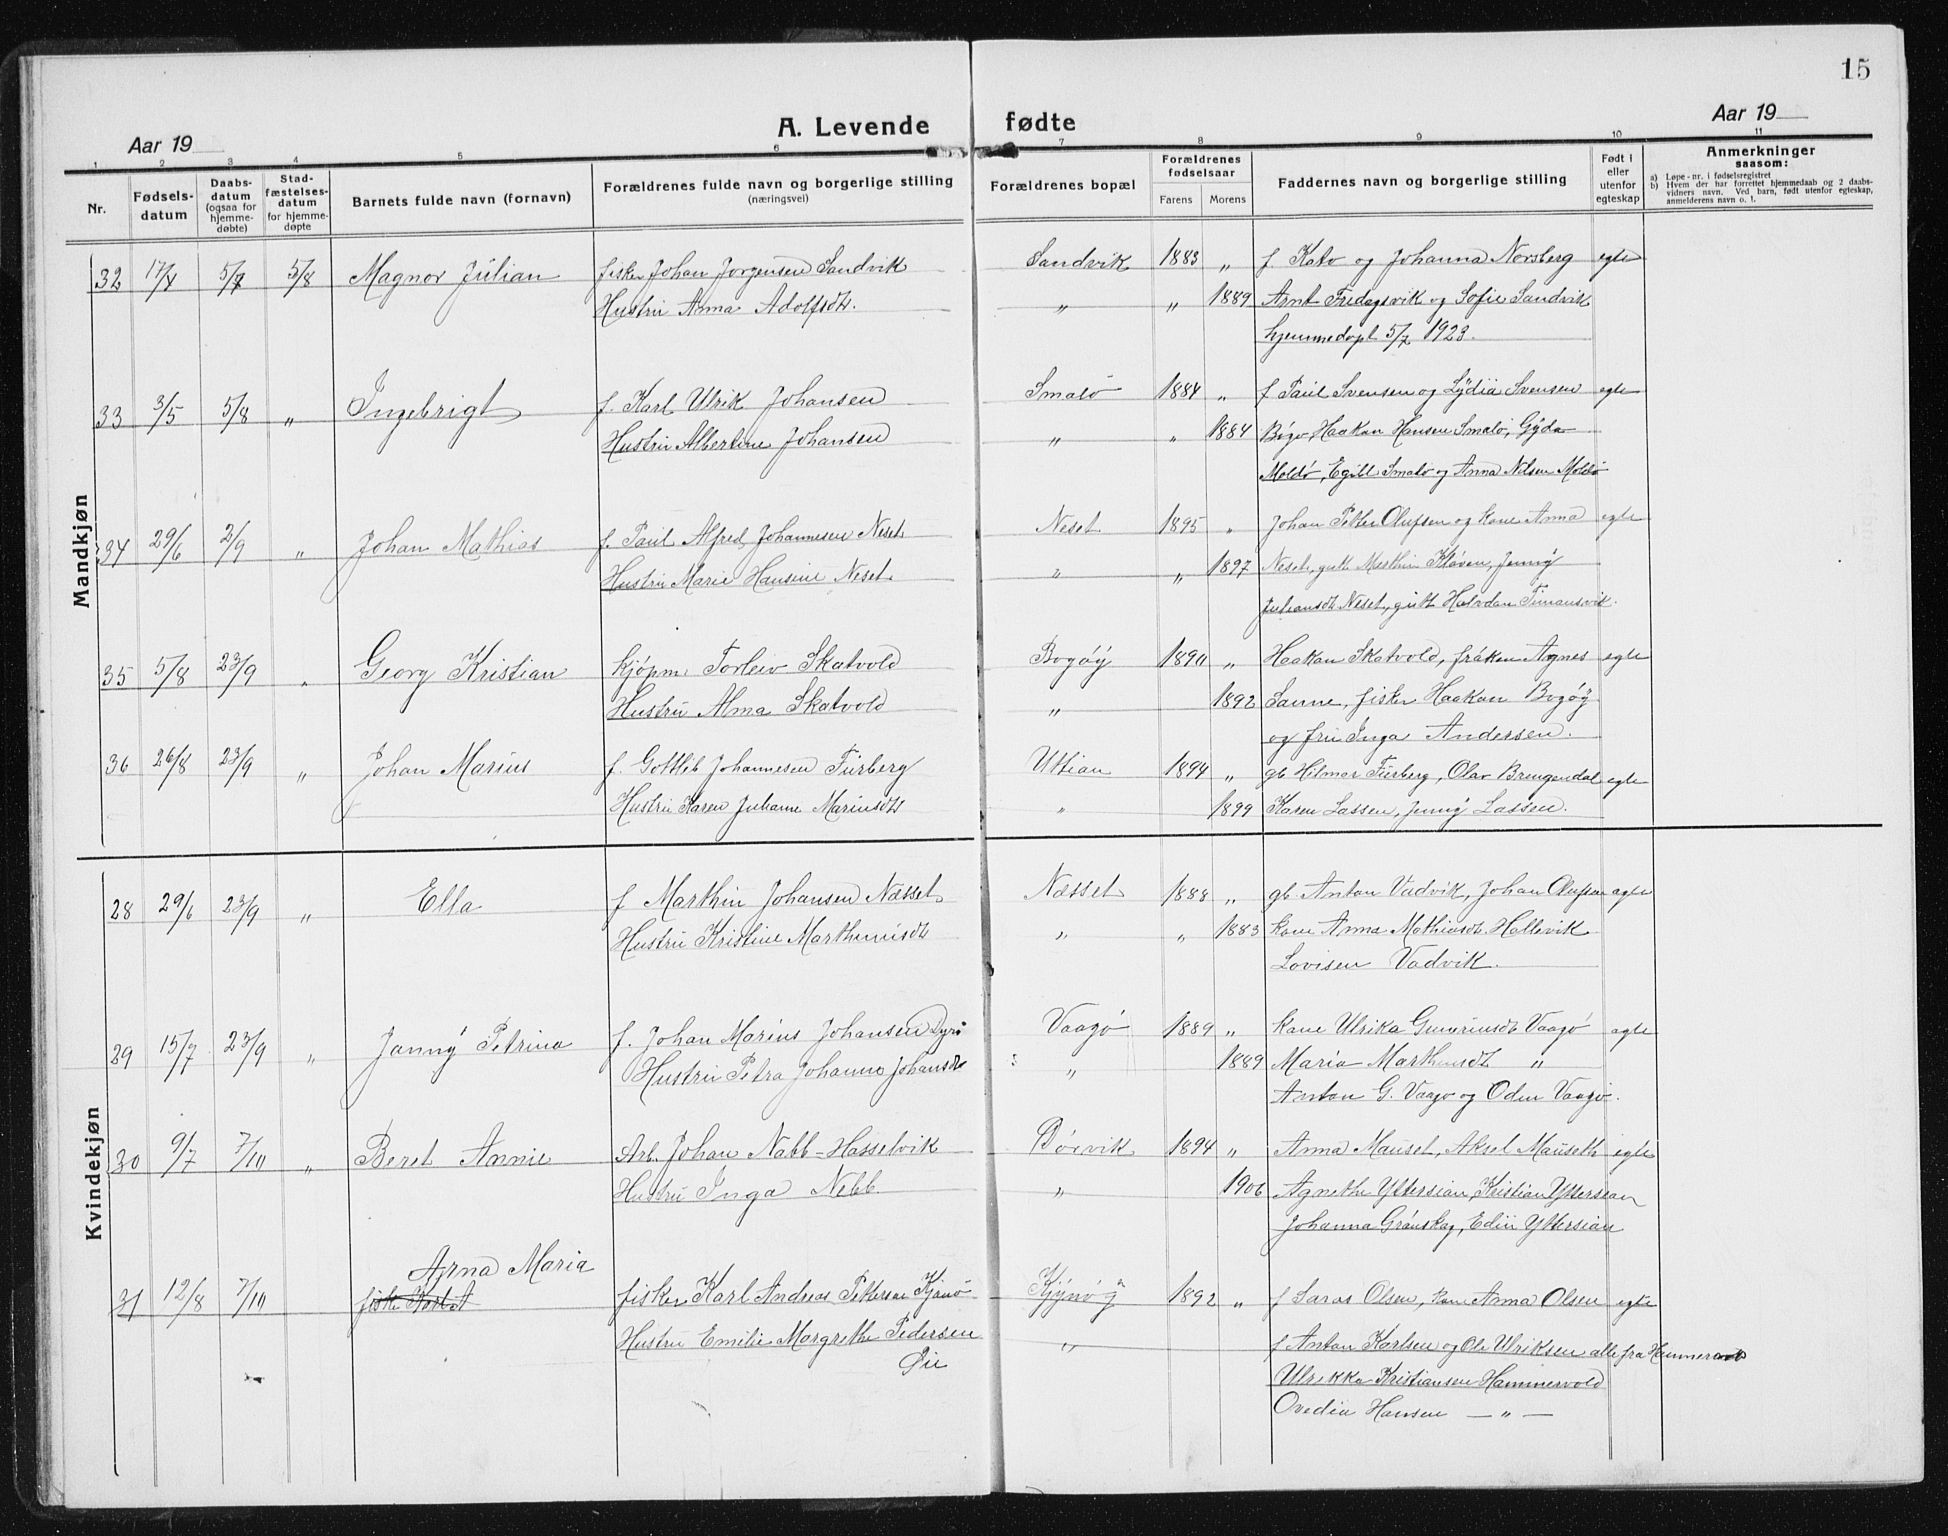 15
Aar 19
A. Levende fødte
Aar 19
1 2 3 4 5 6 7 8 9 10 11
Nr.
Fødsels-datum
Daabs-datum (ogsaa for hjemme-døbte)
Stad-fæstelses-datum for hjemme-døpte
Barnets fulde navn (fornavn)
Forældrenes fulde navn og borgerlige stilling (næringsvei)
Forældrenes bopæl
Forældrenes fødselsaar
Farens Morens
Faddernes navn og borgerlige stilling
Født i eller utenfor egteskap
Anmerkninger saasom:
a) Løpe-nr. i fødselsregistret
b) Hvem der har forrettet hjemmedaab og 2 daabs-vidners navn. Ved barn, født utenfor egteskap, anmelderens navn o. l.
Mandkjøn
32 17/4 5/7 5/8 Magnor Julian fisker Johan Jorgensen Sandvik Sandvik 1883 „ f Kato og Johanna Norsberg egte
Hustru Anna Adolfsdt. „ „ 1889 Arnt Fredagsvik og Sofie Sandvik
hjemmedøpt 5/7 1923.
33 3/5 5/8 „ Ingebrigt f. Karl Ulrik Johansen Smalø 1884 „ f Paul Svensen og Lydia Svensen egte
Hustru Albertine Johansen „ „ 1884 Bøgø, Haakon Hansen Smalø, Gyda
Moldø, Egill Smalø og Anna Nilsen Moldø
34 29/6 2/9 „ Johan Mathias f. Paul Alfred Johannesen Neset Neset 1895 „ Johan Petter Olufsen og kone Anna egte
Hustru Marie Hansine Neset. „ „ 1897 Neset, gutt Marthin Kløven, Jenny
Juliansdt Neset, gutt Halvdan Timansvik.
35 5/8 23/9 „ Georg Kristian kjøpm. Torleiv Skatvold Bogøy 1890 „ Haakon Skatvold, frøken Agnes egte
Hustru Alma Skatvold „ 1892 Sanne, fisker Haakon Bogøy
og fru Inga Andersen.
36 26/8 23/9 „ Johan Marius f. Gottlib Johannesen Furberg Uttian 1894 „ gb Hilmar Furberg, Olav Brengendal egte
Hustru Karen Juliane Mariusdt „ 1899 Karen Lassen, Jenny Lassen.
Kvindekjøn
28 29/6 23/9 „ Ella f Marthin Johansen Næsset Næsset 1888 „ gb Anton Vadvik, Johan Olufsen egte
Hustru Kristine Marthinusdt „ „ 1883 kone Anna Mathiasdt. Hellevik
Lovisen Vadvik.
29 15/7 23/9 „ Janny Petrina f. Johan Marius Johansen Dyrø Vaagø 1889 „ kone Ulrika Gunnriusdt Vaagø egte
Hustru Petra Johanna Johansdt „ 1889 Maria Marthinusdt „
Anton G. Vaagø og Odin Vaagø.
30 9/7 7/10 „ Beret Annie Arb. Johan Nabb-Hasselvik Børvik 1894 „ Anna Mauset, Aksel Mauseth egte
Hustru Inga Nebb „ 1906 Agnethe Yttersian, Kristian Yttersian
Johanna Grønskag, Edin Yttersian
Arna Maria
31 12/8 7/10 fisker Karl A fisker Karl Andreas Pettersen Kjønø Kjønøy 1892 „ f Saras Olsen, kone Anna Olsen egte
Hustru Emilie Margrethe Pedersen „ f Anton Karlsen og Ole Ulriksen alle fra Hammervold
Øie Ulrikka Kristiansen Hammervold
Ovedia Hansen — „ —